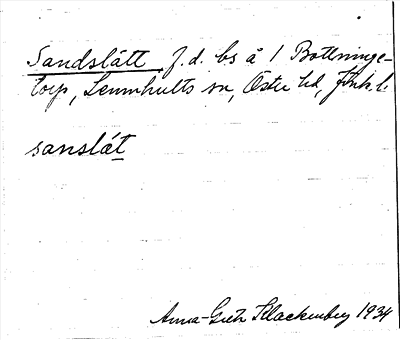 Sandslätt f.d. bs å 1 Bottninge-
torp, Lemnhults sn, Östra hd, Jönk. l.
sanslát
Anna-Greta Klackenberg 1934